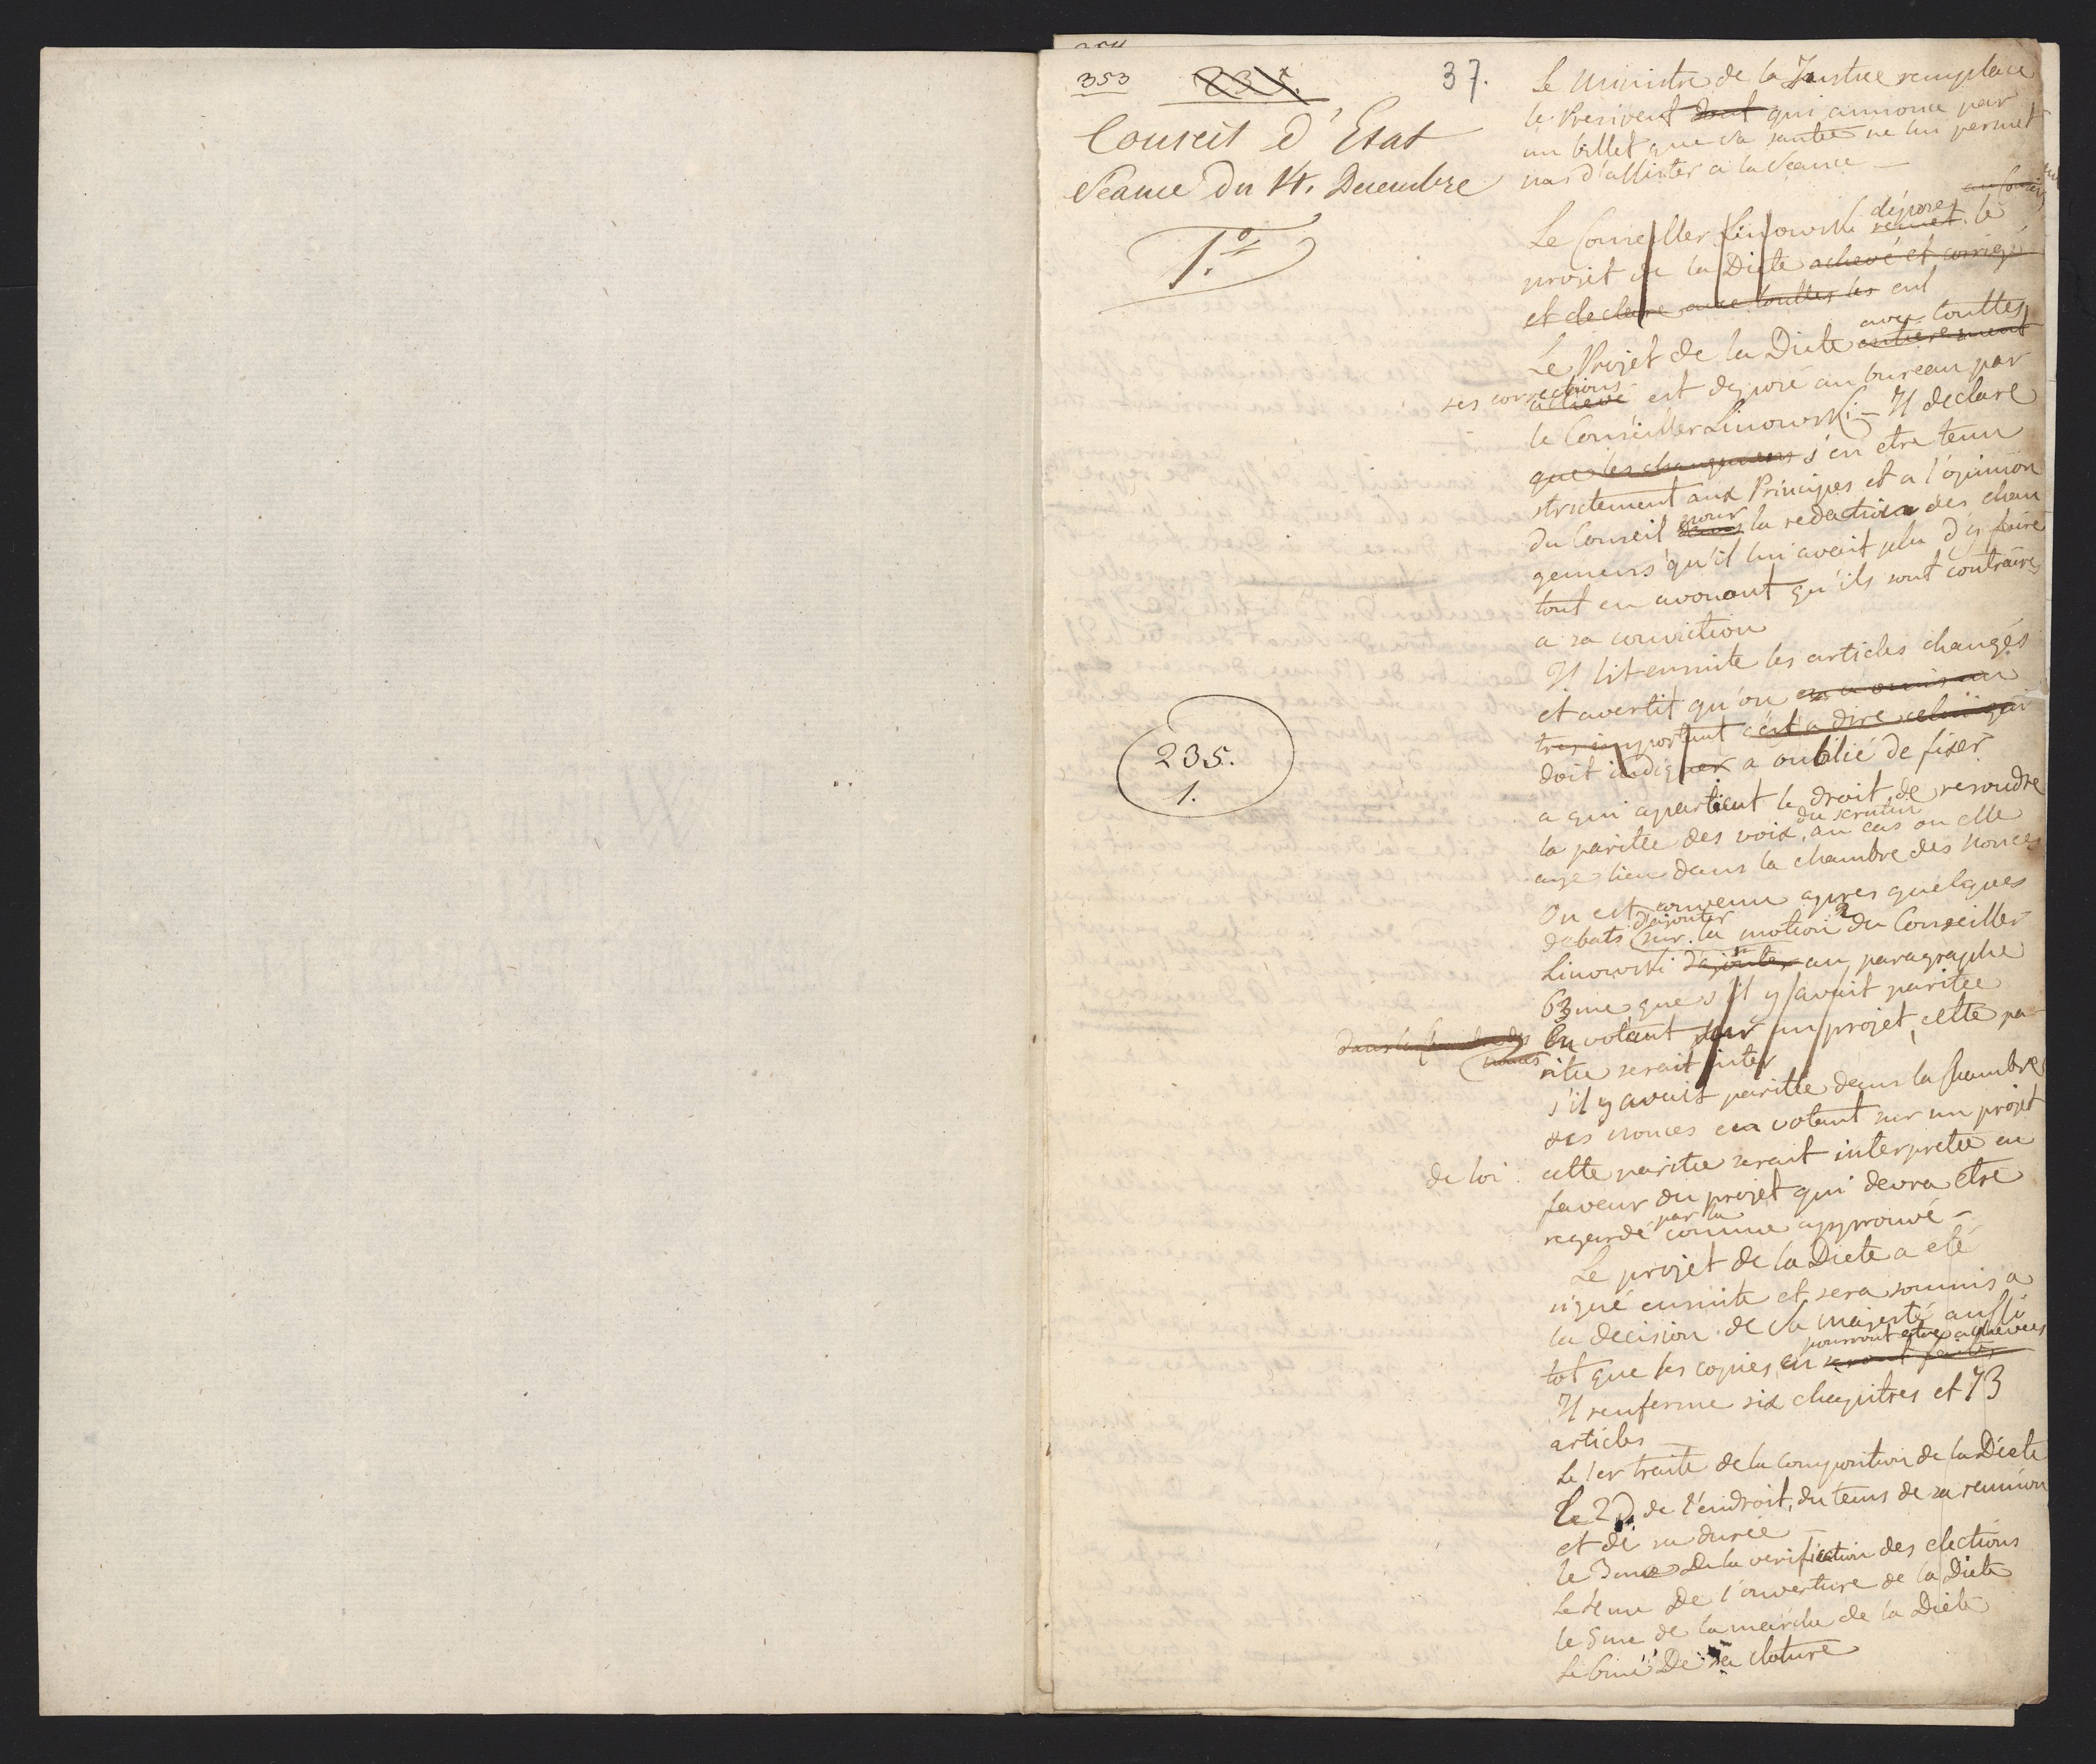 353
235.
37.
Conseil d'Etat
Seance du 14. Decembre
1.º
235.
1.
Le Ministre de la Justice remplace
le President dont qui annonce par
un billet que sa santée ne lui permet
pas d'assister a la seance —
Le Conseiller Linowski depose remet le
projet de la Diete achevé et corrigé
et declare avec touttes les cnl
Le Projet de la Diete avec touttes entierement
ses corrections achevé est deposé au bureau par
le Conseiller Linowski — Il declare
que les changemens s'en etre tenu
strictement aux Principes et a l'opinion
du Conseil dans pour la redaction des chan
gemens qu'il lui avait plu d'y faire
tout en avouant qu'ils sont contraires
a sa conviction
Il lit ensuite les articles changés
et avertit qu'on en a omis un
tres important c'est a dire celui qui
doit indiquer a oublié de fixer
a qui apartient le droit de resoudre
la paritée des voix du scrutin, au cas ou elle
aye lieu dans la chambre des nonces
On est convenu apres quelques
debats d'ajouter sur la motion du Conseiller
Linowski d'ajouter au paragraphe
63me que s'il y avait paritée
dans la chambre des nonces
En votant sur un projet, cette pa-
ritee serait inter
s'il y avait paritée dans la chambre
des nonces en votant sur un projet
de loi cette paritée serait interpretée en
faveur du projet qui devra etre
regardé par la comme approuvé —
Le projet de la Diete a eté
signé ensuite et sera soumis a
la decision de Sa Majesté aussi
tot que les copies en seront faites pourront etre achevées
Il renferme six chapitres et 73
articles —
Le 1er traite de la composition de la Diete
Le 2d de l'endroit, du tems de sa reunion
et de sa durée —
le 3me De la verification des elections
Le 4me De l'ouverture de la Diete
le 5me de la marche de la Diete
Le 6me De sa cloture